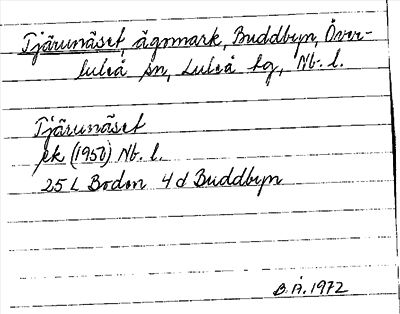 Tjärunäset, ägomark, Buddbyn, Över-
luleå sn, Luleå tg, Nb. l.
Tjärunäset
ek (1950) Nb. l.
25 L Boden 4 d Buddbyn
B.Å. 1972